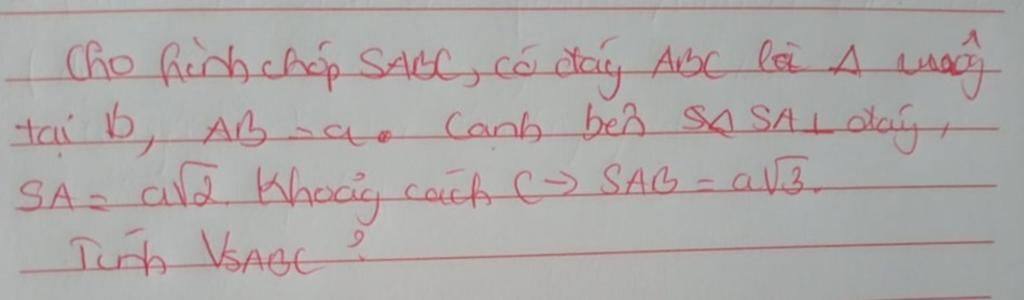 Cho hình chóp SABC, có đáy ABC là Δ vuông
tại b, AB = a. Cạnh bên SA SA ⊥ đáy,
SA = a√2. Khoảng cách C → SAB = a√3.
Tính VSABC ?